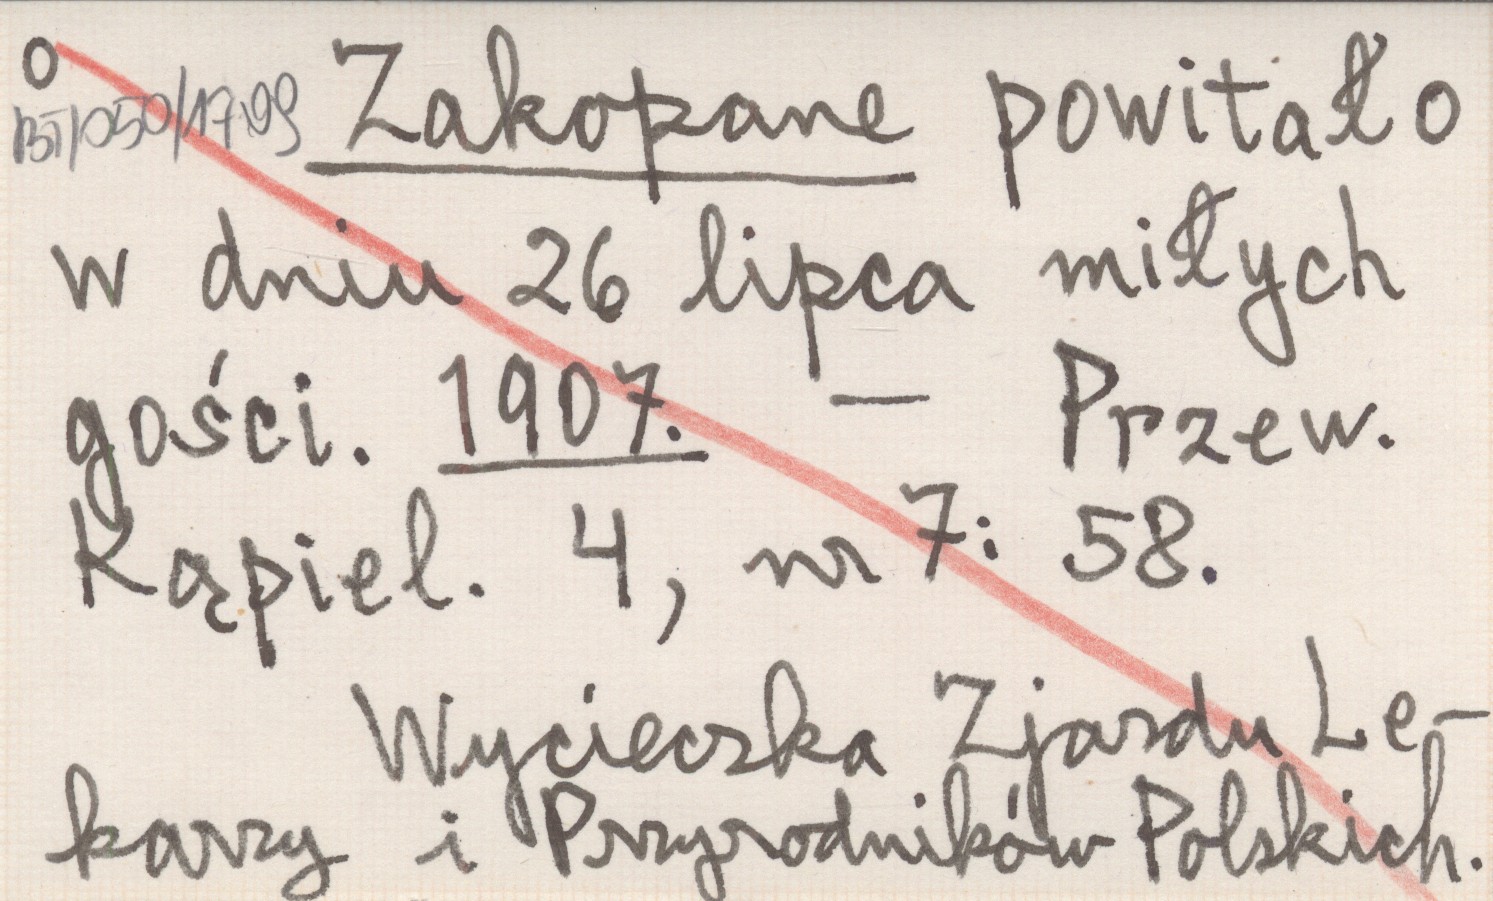 O
BT/050/17.99
Zakopane powitało
w dniu 26 lipca miłych
gości. 1907. — Przew.
Kąpiel. 4, nr 7: 58.
Wycieczka Zjazdu Le-
karzy i Przyrodników Polskich.